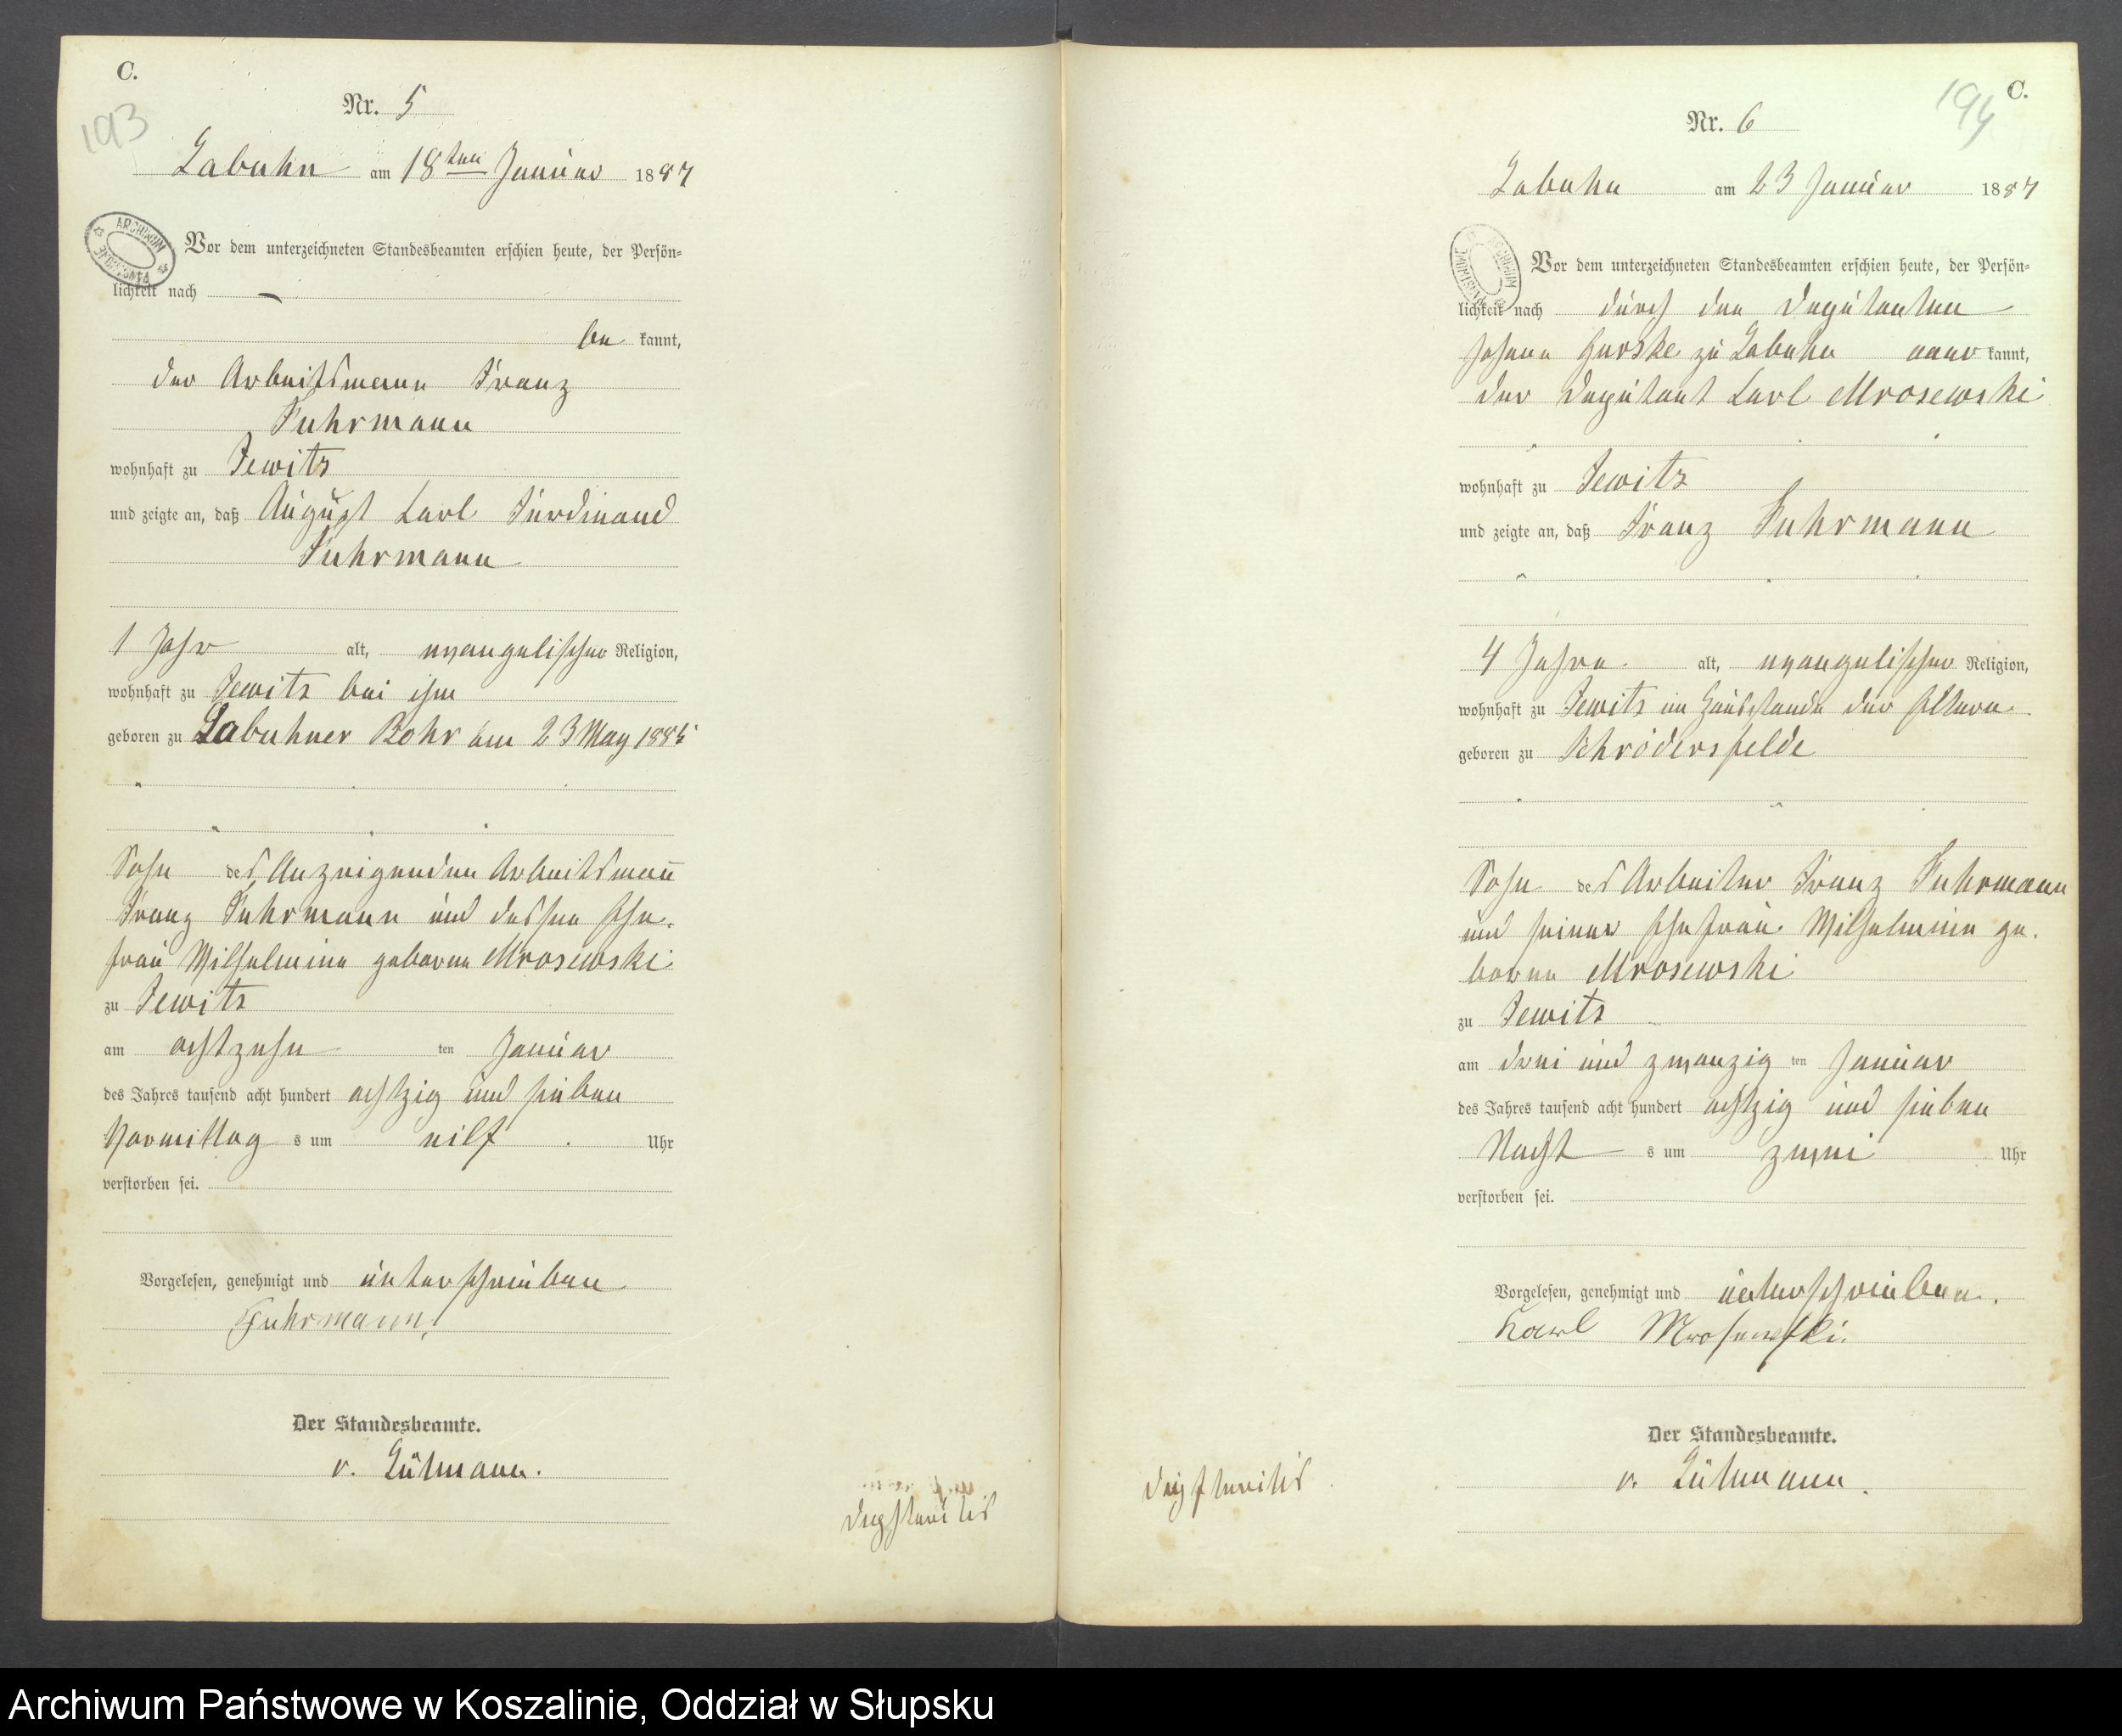 C.
193
Nr. 5
Labuhn am 18ten Januar 1887
ARCHIWUM PAŃSTWOWE
Vor dem unterzeichneten Standesbeamten erschien heute, der Persön-
lichkeit nach —
be kannt,
der Arbeitsmann Franz
Fuhrmann
wohnhaft zu Jewitz
und zeigte an, daß August Carl Ferdinand
Fuhrmann
1 Jahr alt, evangelischer Religion,
wohnhaft zu Jewitz bei ihm
geboren zu Labuhner Rohr am 23 May 1885
Sohn des Anzeigenden Arbeitsmañ
Franz Fuhrmann und dessen Ehe-
frau Wilhelmine geborene Mrosewski
zu Jewitz
am achtzehn ten Januar
des Jahres tausend acht hundert achtzig und sieben
Vormittag s um eilf Uhr
verstorben sei.
Vorgelesen, genehmigt und unterschrieben
Fuhrmann
Der Standesbeamte.
v. Lütmann.
C.
194
Nr. 6
Labuhn am 23 Januar 1887
ARCHIWUM PAŃSTWOWE
Vor dem unterzeichneten Standesbeamten erschien heute, der Persön-
lichkeit nach durch den Deputanten
Johann Garske zu Labuhn aner kannt,
der Deputant Carl Mrosewski
wohnhaft zu Jewitz
und zeigte an, daß Franz Fuhrmann
4 Jahre alt, evangelischer Religion,
wohnhaft zu Jewitz im Hausstande der Eltern
geboren zu Schrödersfelde
Sohn des Arbeiter Franz Fuhrmann
und seiner Ehefrau Wilhelmine ge-
borene Mrosewski
zu Jewitz
am drei und zwanzig ten Januar
des Jahres tausend acht hundert achtzig und sieben
Nacht s um zwei Uhr
verstorben sei.
Vorgelesen, genehmigt und unterschrieben.
Karl Mrosewski.
Der Standesbeamte.
v. Lütmann.
Archiwum Państwowe w Koszalinie, Oddział w Słupsku